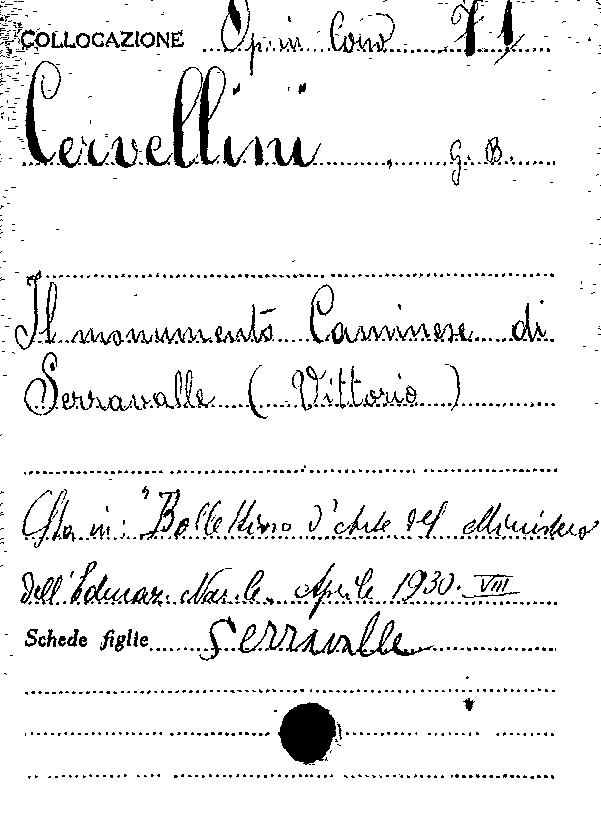 COLLOCAZIONE Op. in Cons 71
Cervellini, G. B.
Il monumento Caminese di
Serravalle ( Vittorio )
Sta in: "Bollettino d'Arte del Ministero
dell'Educaz. Naz.le. Aprile 1930. VIII
Schede figlie Serravalle